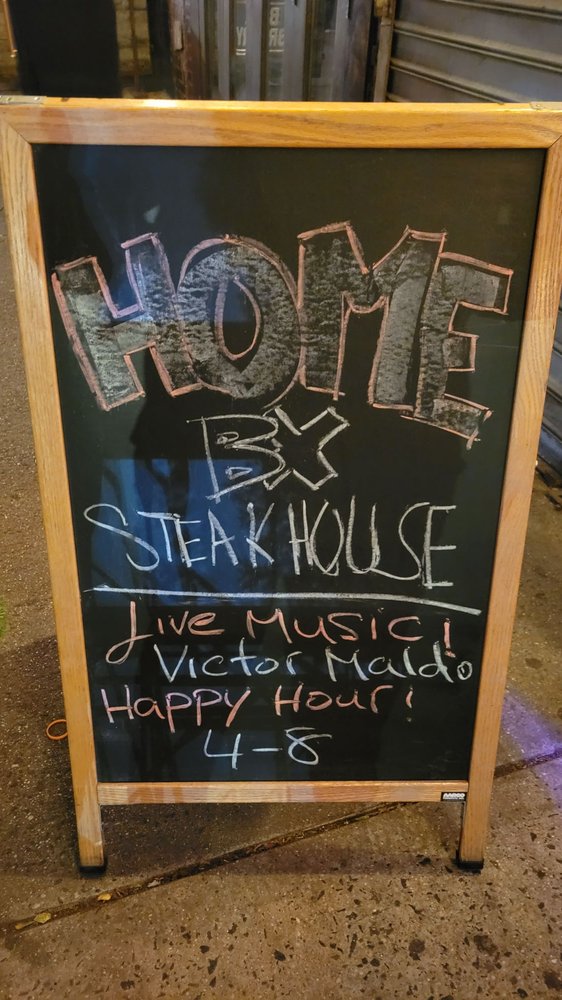 HOME
BX
STEAK HOUSE
Live Music!
Victor Maldo
Happy Hour!
4-8